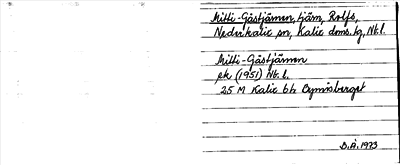 Mitti-Gåstjärnen, tjärn, Rolfs,
Nederkalix sn, Kalix doms. lg, Nb. l.
Mitti-Gåstjärnen
ek (1951) Nb. l.
25 M Kalix bl.
B.Å. 1973